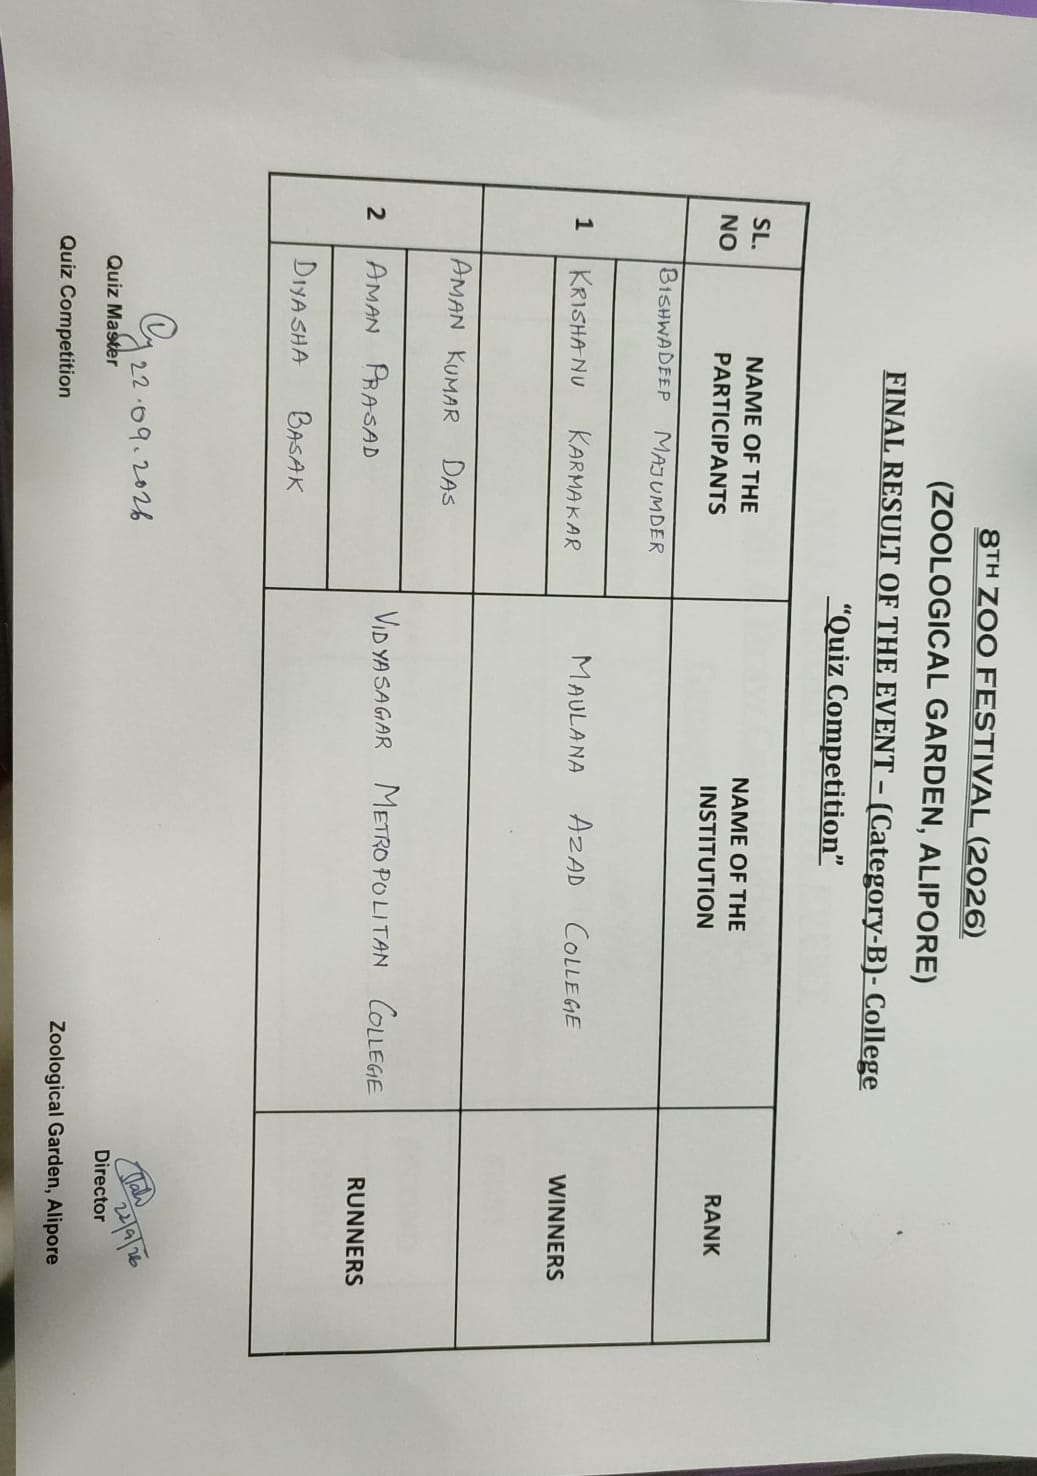 8TH ZOO FESTIVAL (2026)
(ZOOLOGICAL GARDEN, ALIPORE)
FINAL RESULT OF THE EVENT – (Category-B)- College
“Quiz Competition”
SL. NO
NAME OF THE PARTICIPANTS
NAME OF THE INSTITUTION
RANK
1
BISHWADEEP MAJUMDER
KRISHANU KARMAKAR
MAULANA AZAD COLLEGE
WINNERS
2
AMAN KUMAR DAS
AMAN PRASAD
DIYASHA BASAK
VIDYASAGAR METROPOLITAN COLLEGE
RUNNERS
22.09.2026
Quiz Master
Quiz Competition
22/9/26
Director
Zoological Garden, Alipore